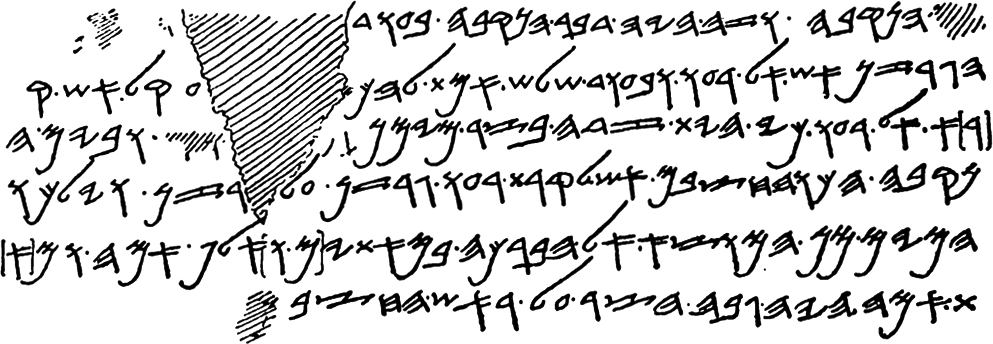 𐤄𐤍𐤒𐤁𐤄 . 𐤅𐤆𐤄 . 𐤄𐤉𐤄 . 𐤃𐤁𐤓 . 𐤄𐤍𐤒𐤁𐤄 . 𐤁𐤏𐤅𐤃
𐤄𐤂𐤓𐤆𐤍 . 𐤀𐤔 . 𐤀𐤋 . 𐤓𐤏𐤅 . 𐤅𐤁𐤏𐤅𐤃 . 𐤔𐤋𐤔 . 𐤀𐤌𐤕 . 𐤋𐤄𐤍 𐤏 𐤒𐤋 . 𐤀𐤔 . 𐤒
[𐤓]𐤀 . 𐤀𐤋 . 𐤓𐤏𐤅 . 𐤊𐤉 . 𐤄𐤉𐤕 . 𐤆𐤃𐤄 . 𐤁𐤑𐤓 . 𐤌𐤉𐤌𐤍 . 𐤅𐤁𐤉𐤌 . 𐤄
𐤍𐤒𐤁𐤄 . 𐤄𐤊𐤅 . 𐤄𐤇𐤑𐤁𐤌 . 𐤀𐤔 . 𐤋𐤒𐤓𐤕 . 𐤓𐤏𐤅 . 𐤂𐤓𐤆𐤍 . 𐤏𐤋 . 𐤓𐤆𐤍 . 𐤅𐤉𐤋𐤊𐤅
𐤄𐤌𐤉𐤌 . 𐤌𐤍 . 𐤄𐤌𐤅𐤑𐤀 . 𐤀𐤋 . 𐤄𐤁𐤓𐤊𐤄 . 𐤁𐤌𐤀𐤕𐤉[𐤌 . 𐤅]𐤀𐤋𐤐 . 𐤀𐤌𐤄 . 𐤅𐤌[𐤀]
𐤕 . 𐤀𐤌𐤄 . 𐤄𐤉𐤄 . 𐤂𐤁𐤄 . 𐤄𐤑𐤓 . 𐤏𐤋 . 𐤓𐤀𐤔 . 𐤄𐤇𐤑𐤁